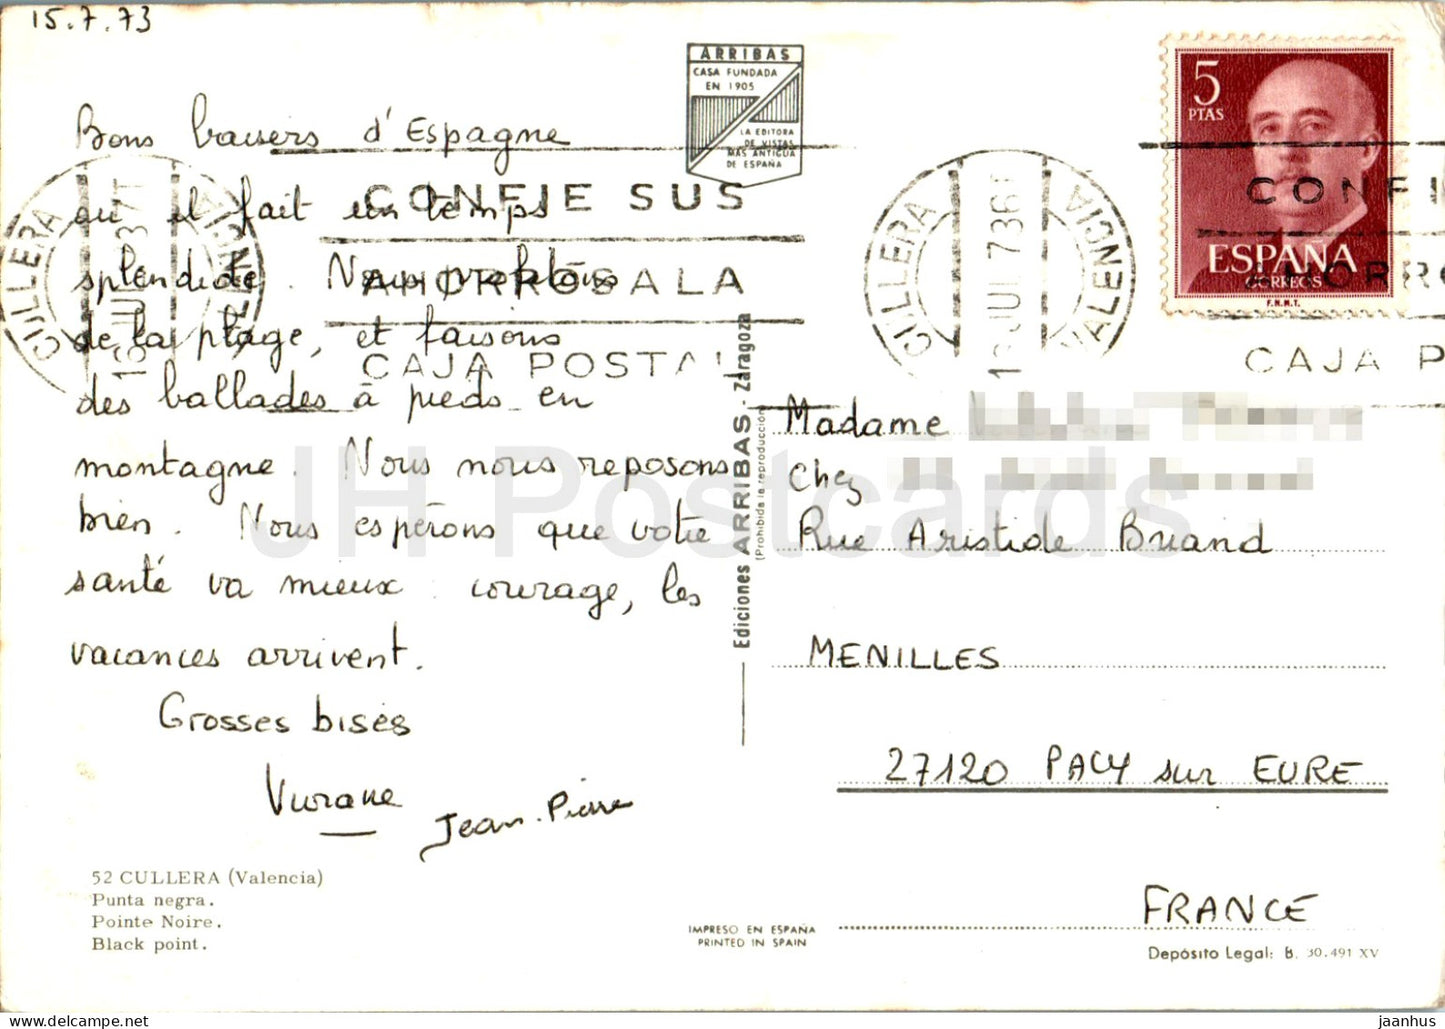 15.7.73
Bons baisers d'Espagne
où il fait un temps
splendide. Nous profitons
de la plage, et faisons
des ballades à pieds en
montagne. Nous nous reposons
bien. Nous espérons que votre
santé va mieux : courage, les
vacances arrivent.
Grosses bises
Viviane
Jean-Pierre
52 CULLERA (Valencia)
Punta negra.
Pointe Noire.
Black point.
ARRIBAS
CASA FUNDADA
EN 1905
LA EDITORA
DE VISTAS
MAS ANTIGUA
DE ESPAÑA
CULLERA
VALENCIA
CONFIE SUS
AHORROS A LA
CAJA POSTAL
Ediciones ARRIBAS - Zaragoza
(Prohibida la reproducción)
IMPRESO EN ESPAÑA
PRINTED IN SPAIN
CULLERA
JUL 73
VALENCIA
5
PTAS
ESPAÑA
CORREOS
F.N.M.T.
CONFI
AHORRO
CAJA P
Madame
Chez
Rue Aristide Briand
MENILLES
27120 PACY sur EURE
FRANCE
Depósito Legal: B. 30.491 XV
JH Postcards
jaanhus @ delcampe.net